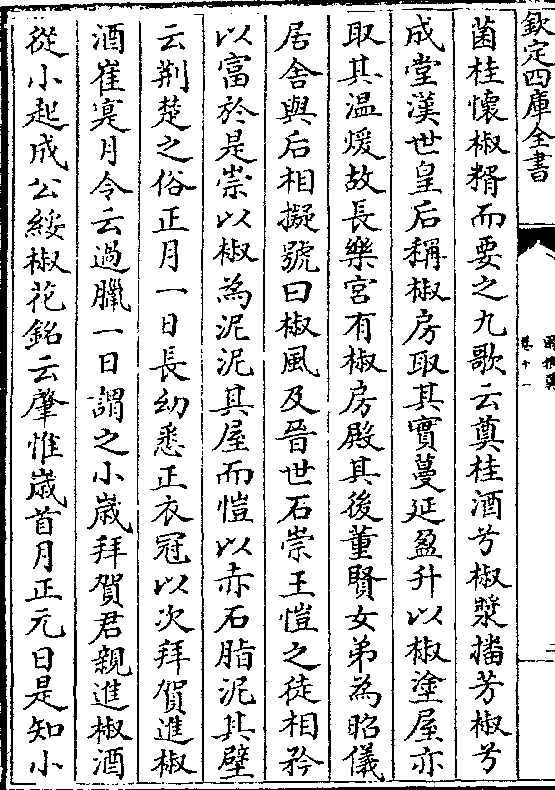 欽定四庫全書
卷十一
菌桂懷椒糈而要之九歌云奠桂酒兮椒漿播芳椒兮
成堂漢世皇后稱椒房取其實蔓延盈升以椒塗屋亦
取其温煖故長樂宮有椒房殿其後董賢女弟為昭儀
居舍與后相擬號曰椒風及晉世石崇王愷之徒相矜
以富於是崇以椒為泥泥其屋而愷以赤石脂泥其壁
云荆楚之俗正月一日長幼悉正衣冠以次拜賀進椒
酒崔寔月令云過臘一日謂之小歲拜賀君親進椒酒
從小起成公綏椒花銘云肇惟歲首月正元日是知小